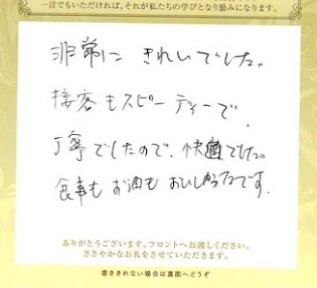 一言でもいただければ、それが私たちの学びとなり励みになります。
非常に きれいでした。
接客もスピーディーで、
丁寧でしたので、快適でした。
食事も お酒も おいしかったです。
ありがとうございます。フロントへお渡しください。
ささやかなお礼をさせていただきます。
書ききれない場合は裏面へどうぞ